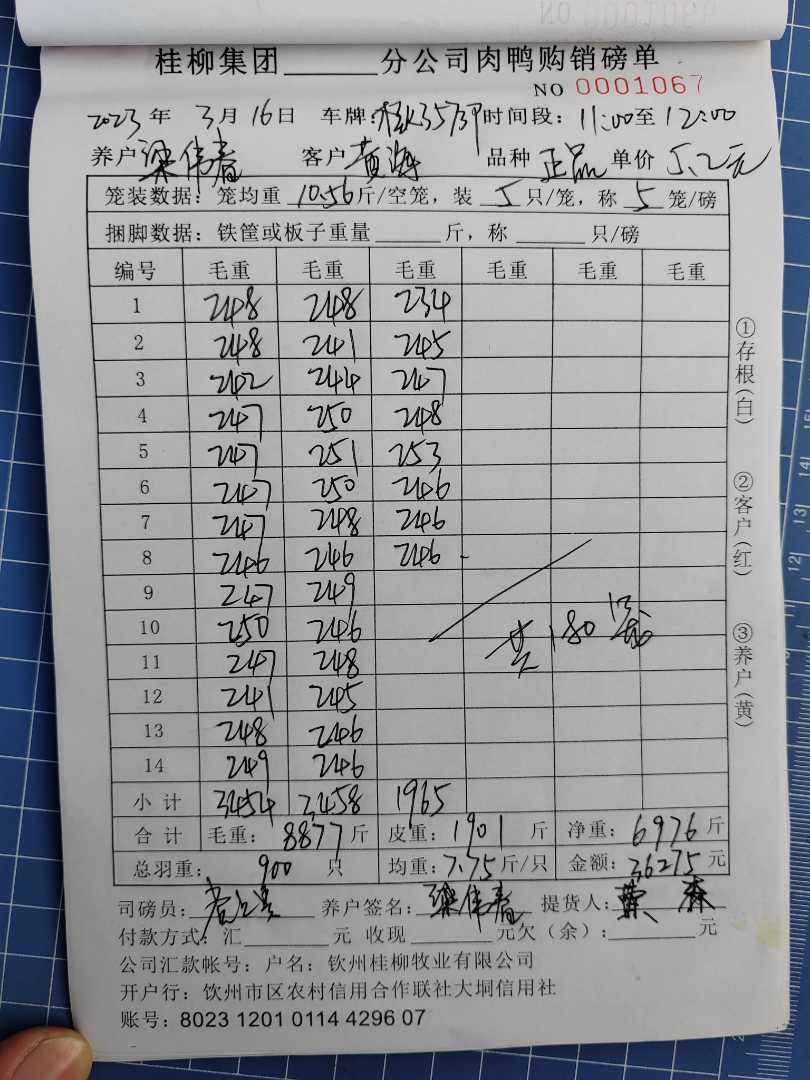 桂柳集团______分公司肉鸭购销磅单
NO 0001067
2023年 3月16日 车牌: 时间段: 11:00至12:00
养户 梁伟春 客户 黄海 品种 正品 单价 5.2元
笼装数据: 笼均重 10.56斤/空笼, 装 5 只/笼, 称 5 笼/磅
捆脚数据: 铁筐或板子重量______斤, 称______只/磅
编号 毛重 毛重 毛重 毛重 毛重 毛重
1 248 248 234
2 248 241 245
3 242 244 247
4 247 250 248
5 247 251 253
6 247 250 246
7 247 248 246
8 246 246 246
9 247 249
10 250 246
共180笼
11 247 248
12 241 245
13 248 246
14 249 246
小计 3454 3458 1965
合计 毛重: 8877斤 皮重: 1901斤 净重: 6976斤
总羽重: 900只 均重: 7.75斤/只 金额: 36275元
司磅员: 养户签名: 梁伟春 提货人: 黄
付款方式: 汇______元 收现______元欠(余): ______元
公司汇款帐号: 户名: 钦州桂柳牧业有限公司
开户行: 饮州市区农村信用合作联社大垌信用社
账号: 8023 1201 0114 4296 07
①存根(白)
②客户(红)
③养户(黄)